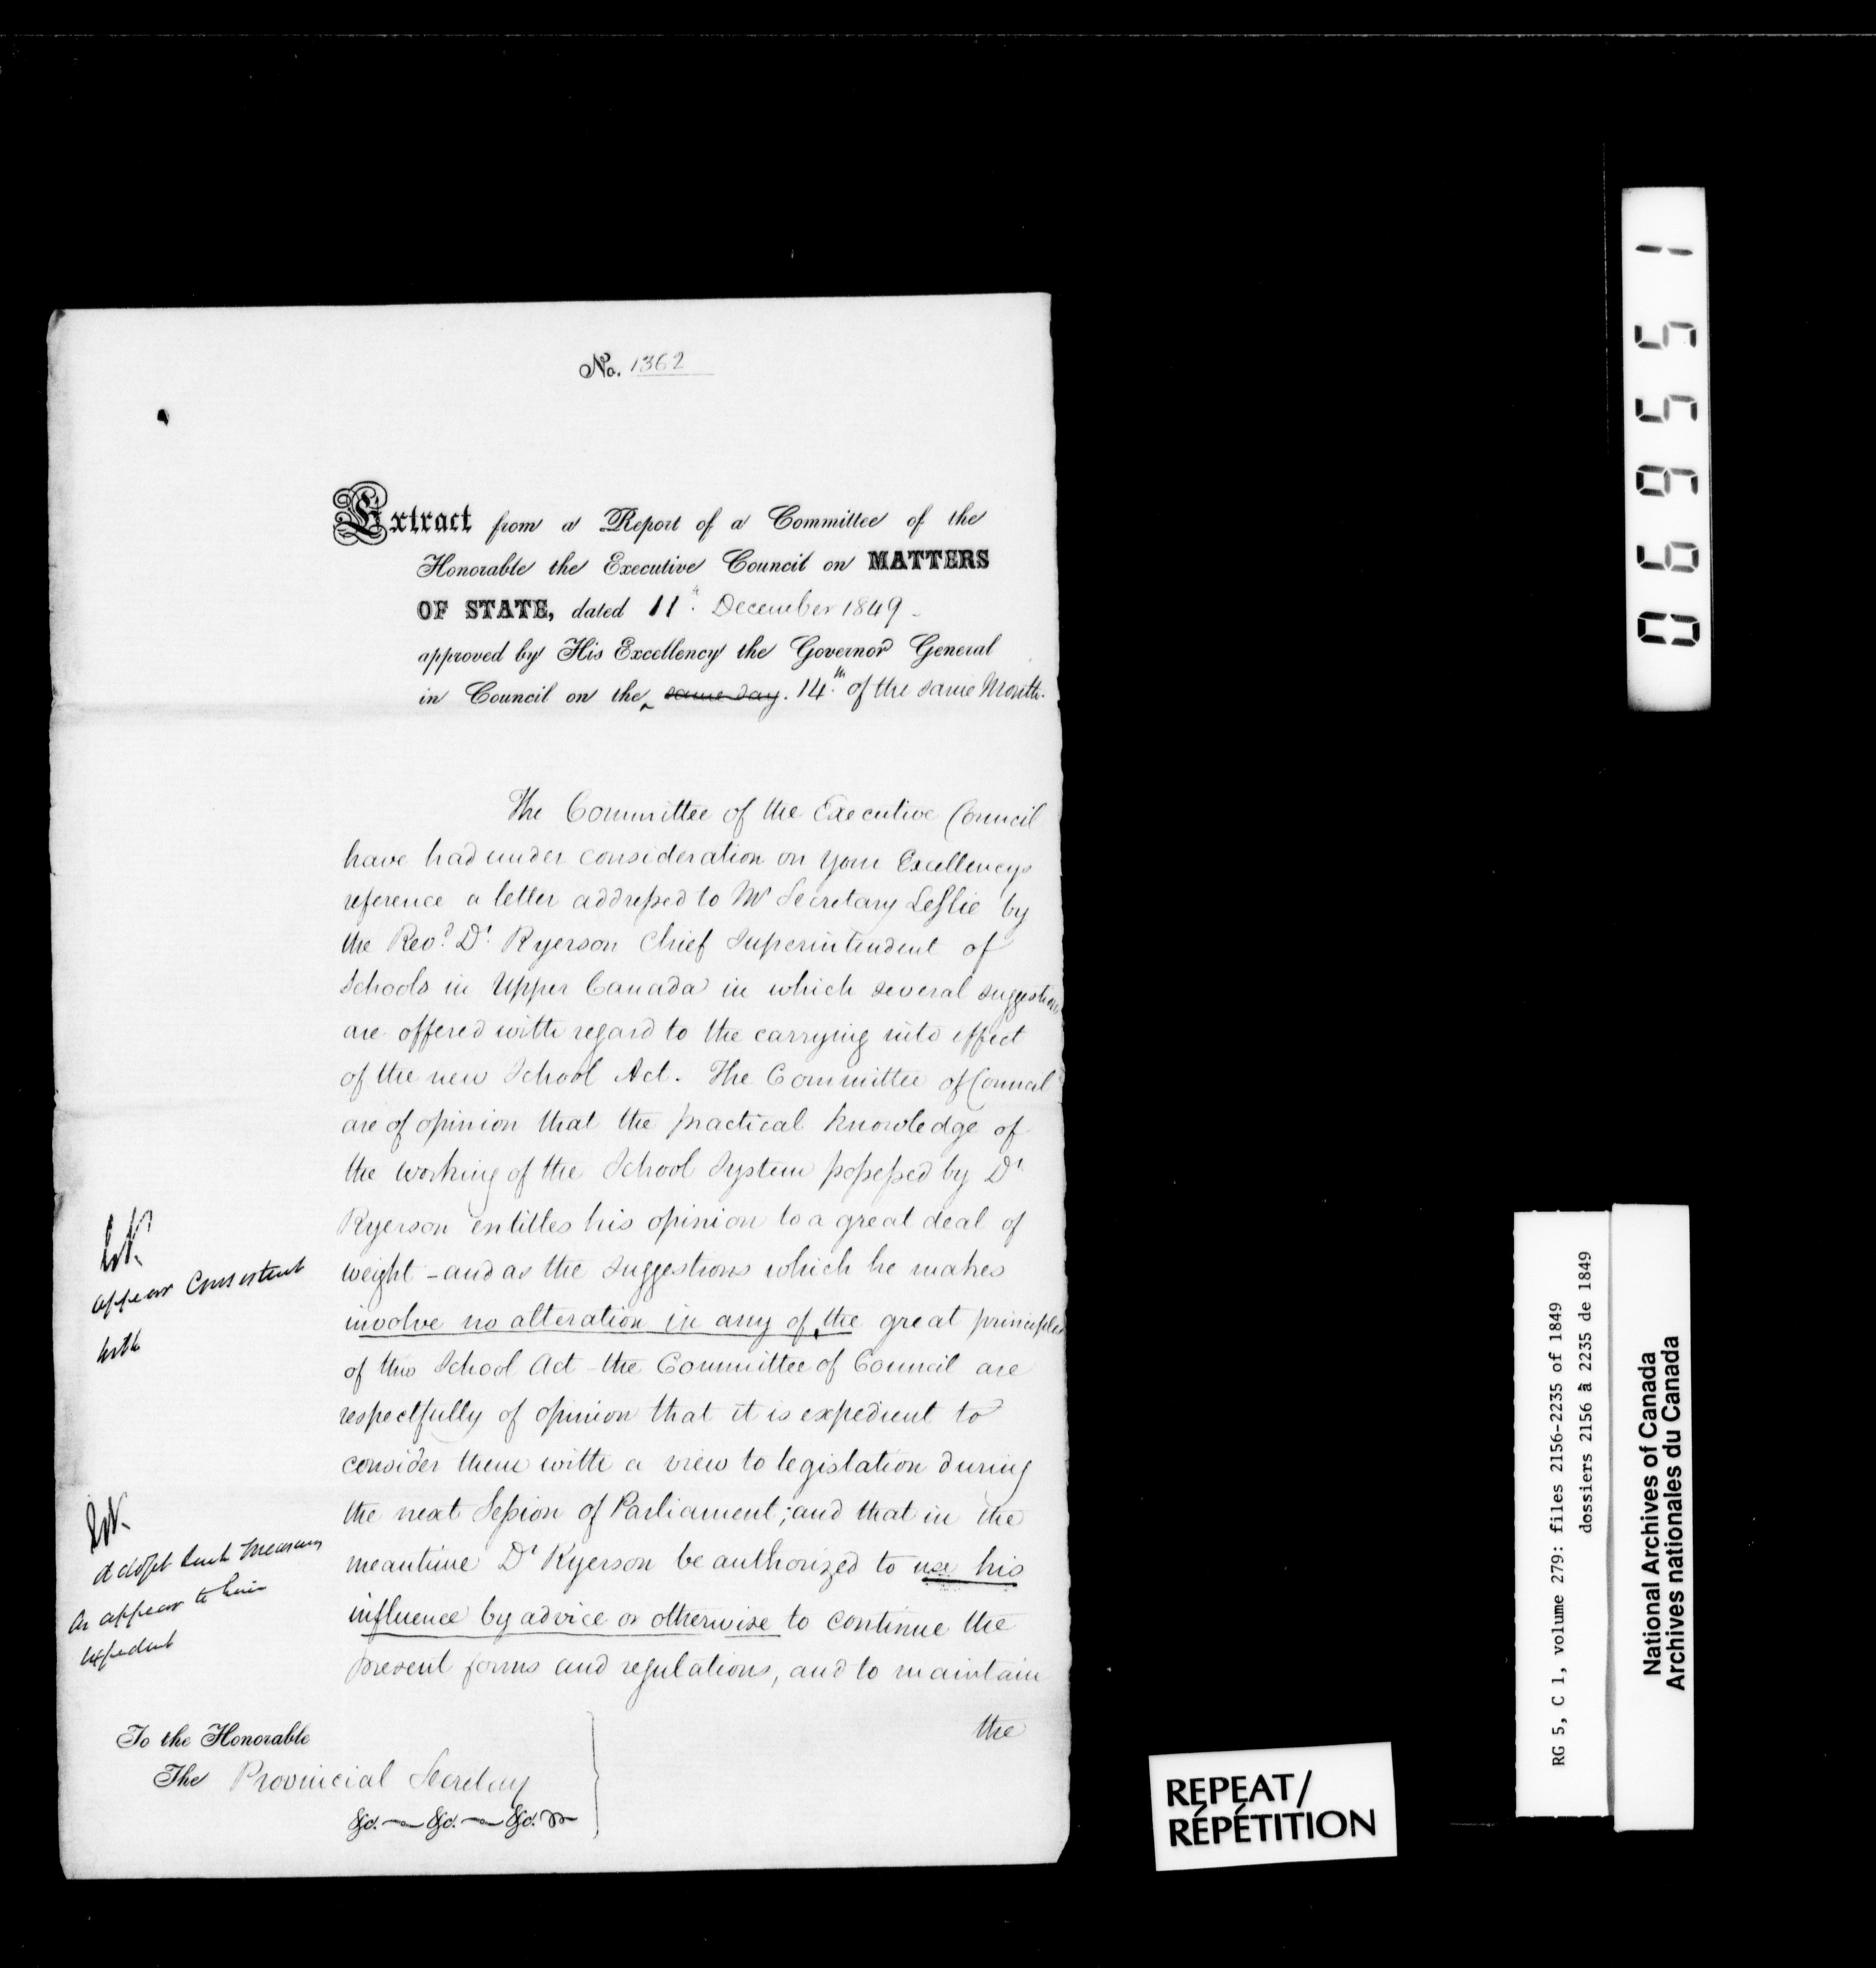 No. 1362
Extract from a Report of a Committee of the
Honorable the Executive Council on MATTERS
OF STATE, dated 11th December 1849
approved by His Excellency the Governor General
in Council on the same day. 14th of the same Month.
The Committee of the Executive Council
have had under consideration on Your Excellencys
reference a letter addressed to Mr Secretary Leslie by
the Revd Dr Ryerson Chief Superintendent of
Schools in Upper Canada in which several suggestions
are offered with regard to the carrying into effect
of the new School Act. The Committee of Council
are of opinion that the practical knowledge of
the working of the School System possessed by Dr
Ryerson entitles his opinion to a great deal of
weight - and as the suggestions which he makes
involve no alteration in any of the great principles
of the School Act - the Committee of Council are
respectfully of opinion that it is expedient to
consider them with a view to legislation during
the next Session of Parliament; and that in the
meantime Dr Ryerson be authorized to use his
influence by advice or otherwise to continue the
present forms and regulations, and to maintain
the
appear consistent
with
adopt such measures
as appear to him
expedient
To the Honorable
The Provincial Secretary
&c. &c. &c.
REPEAT/
RÉPÉTITION
069551
RG 5, C 1, volume 279: files 2156-2235 of 1849
dossiers 2156 à 2235 de 1849
National Archives of Canada
Archives nationales du Canada